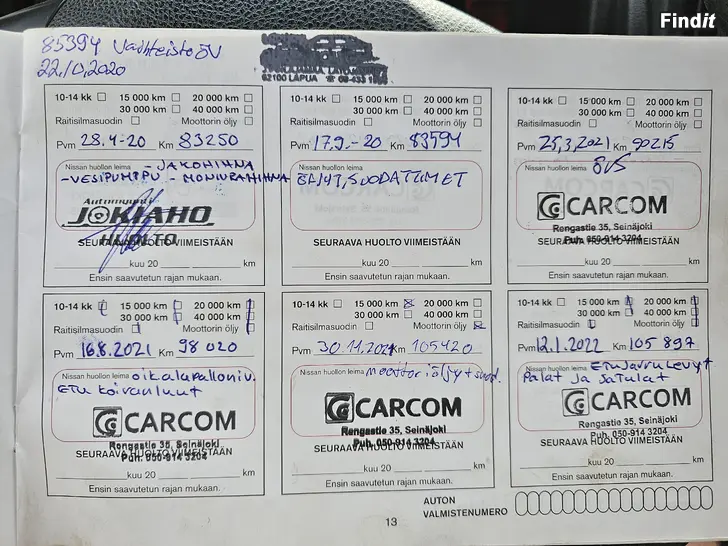 Findit
85394 Vaihteisto ÖV
22.10.2020
62100 LAPUA
10-14 kk 15 000 km 20 000 km
30 000 km 40 000 km
Raitisilmasuodin Moottorin öljy
Pvm 28.4-20 Km 83250
Nissan huollon leima - JAKOHIHNA
- VESIPUMPPU - MONIURAHIHNA
Autohuolto
JOKIAHO
SEURAAVA HUOLTO VIIMEISTÄÄN
kuu 20 km
Ensin saavutetun rajan mukaan.
10-14 kk 15 000 km 20 000 km
30 000 km 40 000 km
Raitisilmasuodin Moottorin öljy
Pvm 17.9.-20 Km 83594
Nissan huollon leima
SUODATTIMET
SEURAAVA HUOLTO VIIMEISTÄÄN
kuu 20 km
Ensin saavutetun rajan mukaan.
10-14 kk 15 000 km 20 000 km
30 000 km 40 000 km
Raitisilmasuodin Moottorin öljy
Pvm 25.3.2021 Km 90215
Nissan huollon leima ÖVS
CARCOM
Rengastie 35, Seinäjoki
Puh. 050-914 3204
SEURAAVA HUOLTO VIIMEISTÄÄN
kuu 20 km
Ensin saavutetun rajan mukaan.
10-14 kk 15 000 km 20 000 km
30 000 km 40 000 km
Raitisilmasuodin Moottorin öljy
Pvm 16.8.2021 Km 98 020
Nissan huollon leima oik alapalloniv.
ETU koiranluut
CARCOM
Rengastie 35, Seinäjoki
SEURAAVA HUOLTO VIIMEISTÄÄN
Puh. 050-914 3204
kuu 20 km
Ensin saavutetun rajan mukaan.
10-14 kk 15 000 km 20 000 km
30 000 km 40 000 km
Raitisilmasuodin Moottorin öljy
Pvm 30.11.2021 Km 105420
Nissan huollon leima moottoriöljyt+suod.
CARCOM
Rengastie 35, Seinäjoki
Puh. 050-914 3204
SEURAAVA HUOLTO VIIMEISTÄÄN
kuu 20 km
Ensin saavutetun rajan mukaan.
10-14 kk 15 000 km 20 000 km
30 000 km 40 000 km
Raitisilmasuodin Moottorin öljy
Pvm 12.1.2022 Km 105 897
Nissan huollon leima Etujarrulevyt
Palat ja satulat
CARCOM
Rengastie 35, Seinäjoki
Puh. 050-914 3204
SEURAAVA HUOLTO VIIMEISTÄÄN
kuu 20 km
Ensin saavutetun rajan mukaan.
AUTON
VALMISTENUMERO
13